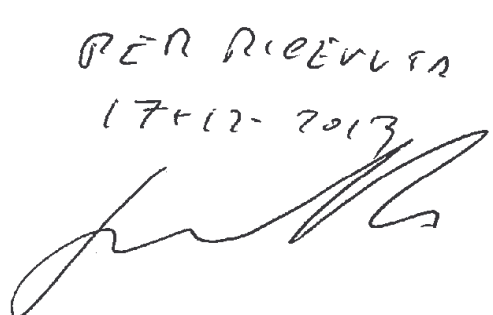 PER RICEVUTA
17-12-2013